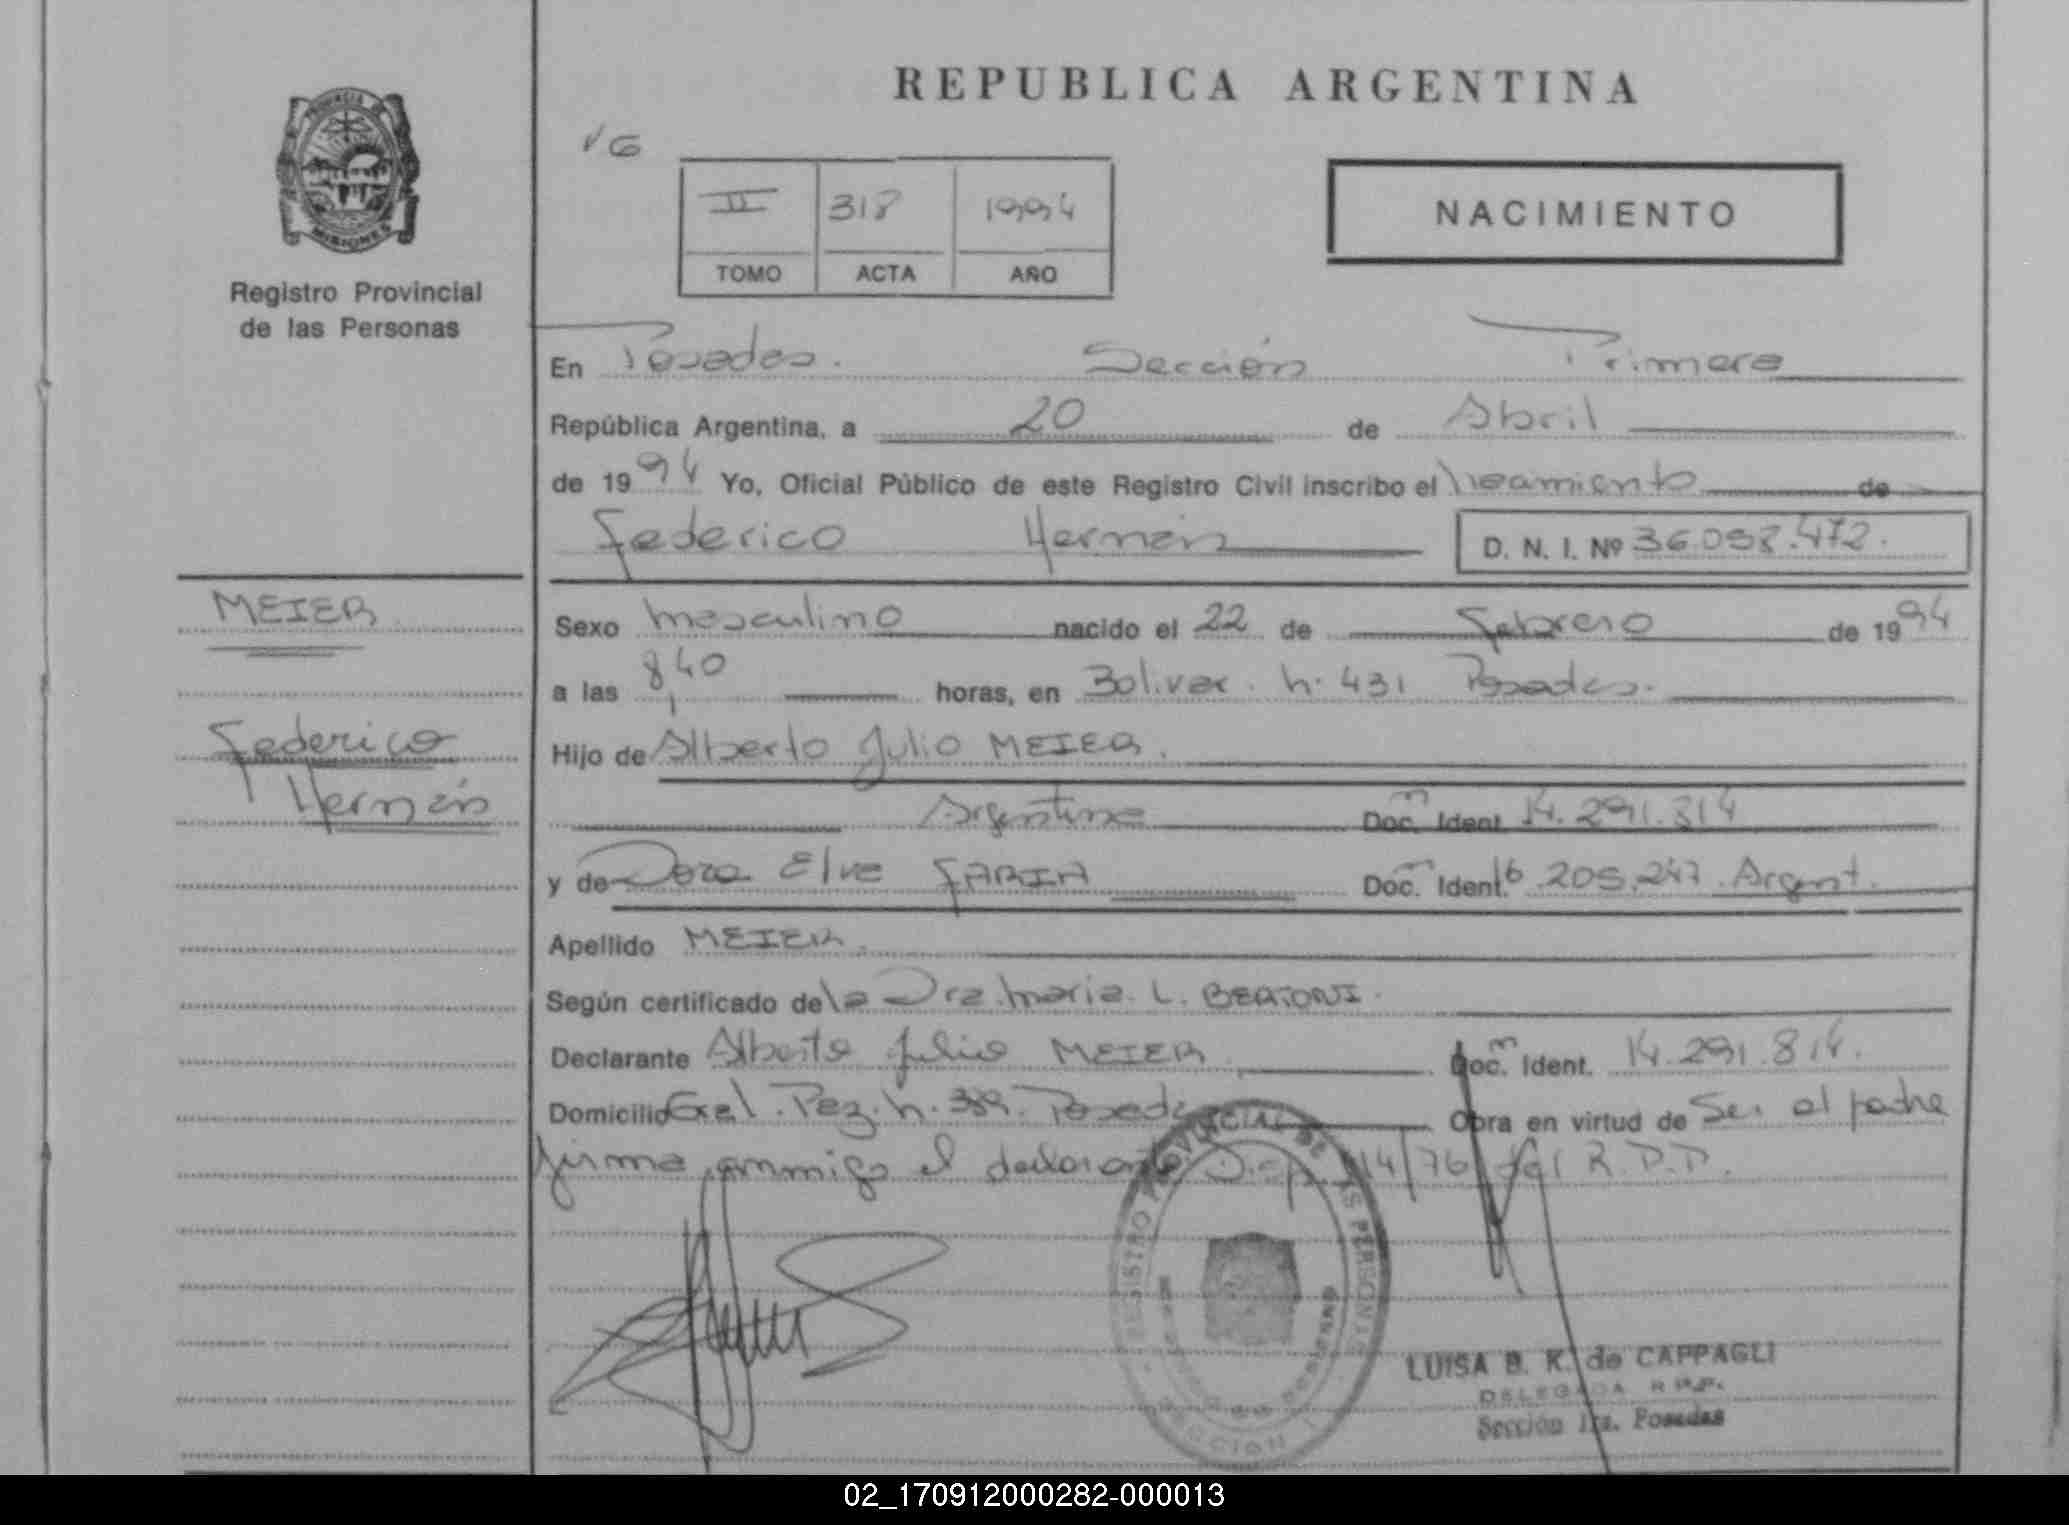 REPUBLICA ARGENTINA
PROVINCIA DE
MISIONES
Registro Provincial
de las Personas
VG
II 318 1994
TOMO ACTA AÑO
NACIMIENTO
En Posadas. Sección Primera
República Argentina, a 20 de Abril
de 1994 Yo, Oficial Público de este Registro Civil inscribo el nacimiento de
Federico Hernán D. N. I. Nº 36.098.472.
MEIER
Federico
Hernán
Sexo masculino nacido el 22 de febrero de 1994
a las 8,40 horas, en Bolivar. h. 431 Posadas.
Hijo de Alberto Julio MEIER.
Argentina Doc. Ident. 14.291.814
y de Dora Elva FARIA Doc. Ident. 16.205.247. Argent.
Apellido MEIER.
Según certificado de la Dra. maria. L. BERTONI.
Declarante Alberto Julio MEIER Doc. Ident. 14.291.814.
Domicilio Gral. Paz. h. 389. Posadas Obra en virtud de Ser el padre
firma conmigo el declarante Disp 114/76 del R.P.P.
REGISTRO PROVINCIAL DE LAS PERSONAS
SECCION 1
LUISA B. K. de CAPPAGLI
DELEGADA R.P.P.
Sección 1ra. Posadas
02_170912000282-000013